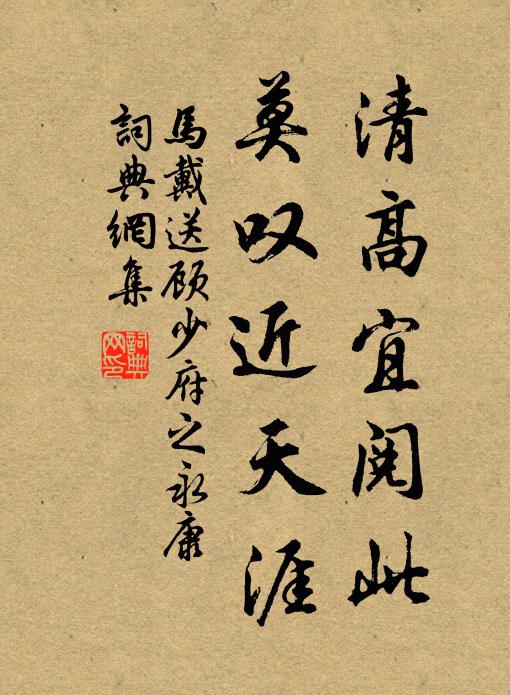 清高宜閱此
莫叹近天涯
馬戴送顾少府之永康
詞典網集
詞典網印